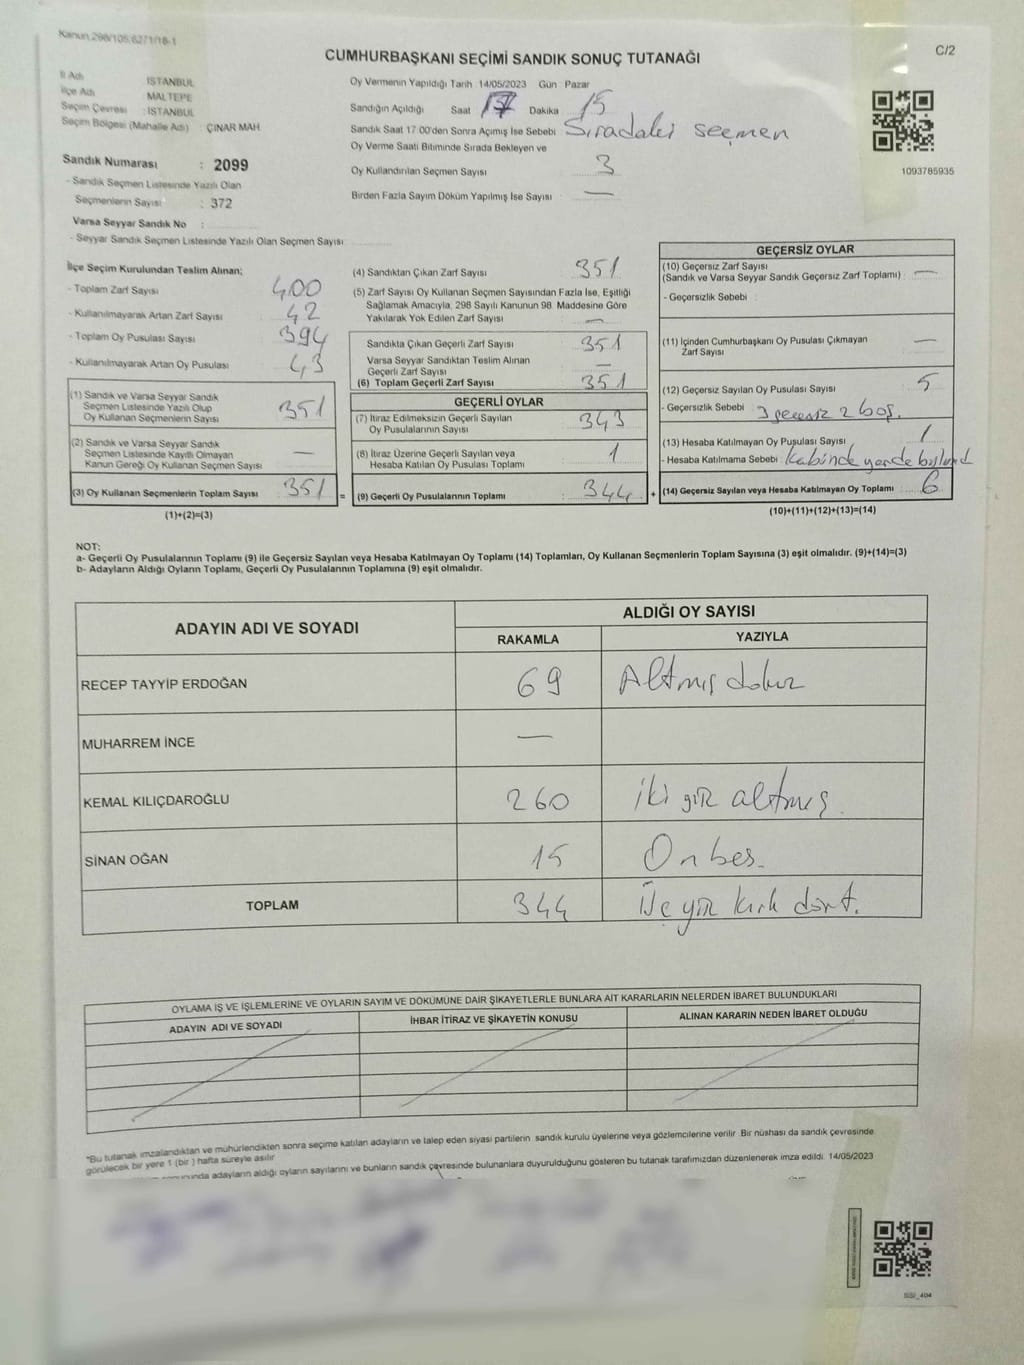 Kanun,298/105,6271/18-1
CUMHURBAŞKANI SEÇİMİ SANDIK SONUÇ TUTANAĞI
C/2
İl Adı : İSTANBUL
İlçe Adı : MALTEPE
Seçim Çevresi : İSTANBUL
Seçim Bölgesi (Mahalle Adı) : ÇINAR MAH.
Sandık Numarası : 2099
- Sandık Seçmen Listesinde Yazılı Olan
Seçmenlerin Sayısı : 372
Varsa Seyyar Sandık No :
- Seyyar Sandık Seçmen Listesinde Yazılı Olan Seçmen Sayısı
Oy Vermenin Yapıldığı Tarih 14/05/2023 Gün Pazar
Sandığın Açıldığı Saat 17 Dakika 15
Sandık Saat 17:00'den Sonra Açımış İse Sebebi Sıradaki seçmen
Oy Verme Saati Bitiminde Sırada Bekleyen ve
Oy Kullandırılan Seçmen Sayısı 3
Birden Fazla Sayım Döküm Yapılmış İse Sayısı —
1093785935
İlçe Seçim Kurulundan Teslim Alınan;
- Toplam Zarf Sayısı 400
- Kullanılmayarak Artan Zarf Sayısı : 42
- Toplam Oy Pusulası Sayısı 394
- Kullanılmayarak Artan Oy Pusulası 43
(1) Sandık ve Varsa Seyyar Sandık
Seçmen Listesinde Yazılı Olup
Oy Kullanan Seçmenlerin Sayısı 351
(2) Sandık ve Varsa Seyyar Sandık
Seçmen Listesinde Kayıtlı Olmayan
Kanun Gereği Oy Kullanan Seçmen Sayısı —
(3) Oy Kullanan Seçmenlerin Toplam Sayısı 351 =
(1)+(2)=(3)
(4) Sandıktan Çıkan Zarf Sayısı 351
(5) Zarf Sayısı Oy Kullanan Seçmen Sayısından Fazla İse, Eşitliği
Sağlamak Amacıyla, 298 Sayılı Kanunun 98. Maddesine Göre
Yakılarak Yok Edilen Zarf Sayısı —
Sandıkta Çıkan Geçerli Zarf Sayısı 351
Varsa Seyyar Sandıktan Teslim Alınan
Geçerli Zarf Sayısı —
(6) Toplam Geçerli Zarf Sayısı 351
GEÇERLİ OYLAR
(7) İtiraz Edilmeksizin Geçerli Sayılan
Oy Pusulalarının Sayısı : 343
(8) İtiraz Üzerine Geçerli Sayılan veya
Hesaba Katılan Oy Pusulası Toplamı : 1
(9) Geçerli Oy Pusulalarının Toplamı : 344 +
GEÇERSİZ OYLAR
(10) Geçersiz Zarf Sayısı
(Sandık ve Varsa Seyyar Sandık Geçersiz Zarf Toplamı) : —
- Geçersizlik Sebebi :
(11) İçinden Cumhurbaşkanı Oy Pusulası Çıkmayan
Zarf Sayısı —
(12) Geçersiz Sayılan Oy Pusulası Sayısı 5
- Geçersizlik Sebebi : 3 geçersiz 2 boş.
(13) Hesaba Katılmayan Oy Pusulası Sayısı 1
- Hesaba Katılmama Sebebi : Kabinde yerde bulundu
(14) Geçersiz Sayılan veya Hesaba Katılmayan Oy Toplamı : 6
(10)+(11)+(12)+(13)=(14)
NOT:
a- Geçerli Oy Pusulalarının Toplamı (9) ile Geçersiz Sayılan veya Hesaba Katılmayan Oy Toplamı (14) Toplamları, Oy Kullanan Seçmenlerin Toplam Sayısına (3) eşit olmalıdır. (9)+(14)=(3)
b- Adayların Aldığı Oyların Toplamı, Geçerli Oy Pusulalarının Toplamına (9) eşit olmalıdır.
ADAYIN ADI VE SOYADI
ALDIĞI OY SAYISI
RAKAMLA YAZIYLA
RECEP TAYYİP ERDOĞAN 69 Altmış dokuz
MUHARREM İNCE —
KEMAL KILIÇDAROĞLU 260 iki yüz altmış.
SİNAN OĞAN 15 On beş.
TOPLAM 344 Üç yüz kırk dört.
OYLAMA İŞ VE İŞLEMLERİNE VE OYLARIN SAYIM VE DÖKÜMÜNE DAİR ŞİKAYETLERLE BUNLARA AİT KARARLARIN NELERDEN İBARET BULUNDUKLARI
ADAYIN ADI VE SOYADI İHBAR İTİRAZ VE ŞİKAYETİN KONUSU ALINAN KARARIN NEDEN İBARET OLDUĞU
*Bu tutanak imzalandıktan ve mühürlendikten sonra seçime katılan adayların ve talep eden siyasi partilerin sandık kurulu üyelerine veya gözlemcilerine verilir. Bir nüshası da sandık çevresinde
görülecek bir yere 1 (bir) hafta süreyle asılır.
adayların aldığı oyların sayılarını ve bunların sandık çevresinde bulunanlara duyurulduğunu gösteren bu tutanak tarafımızdan düzenlenerek imza edildi. 14/05/2023